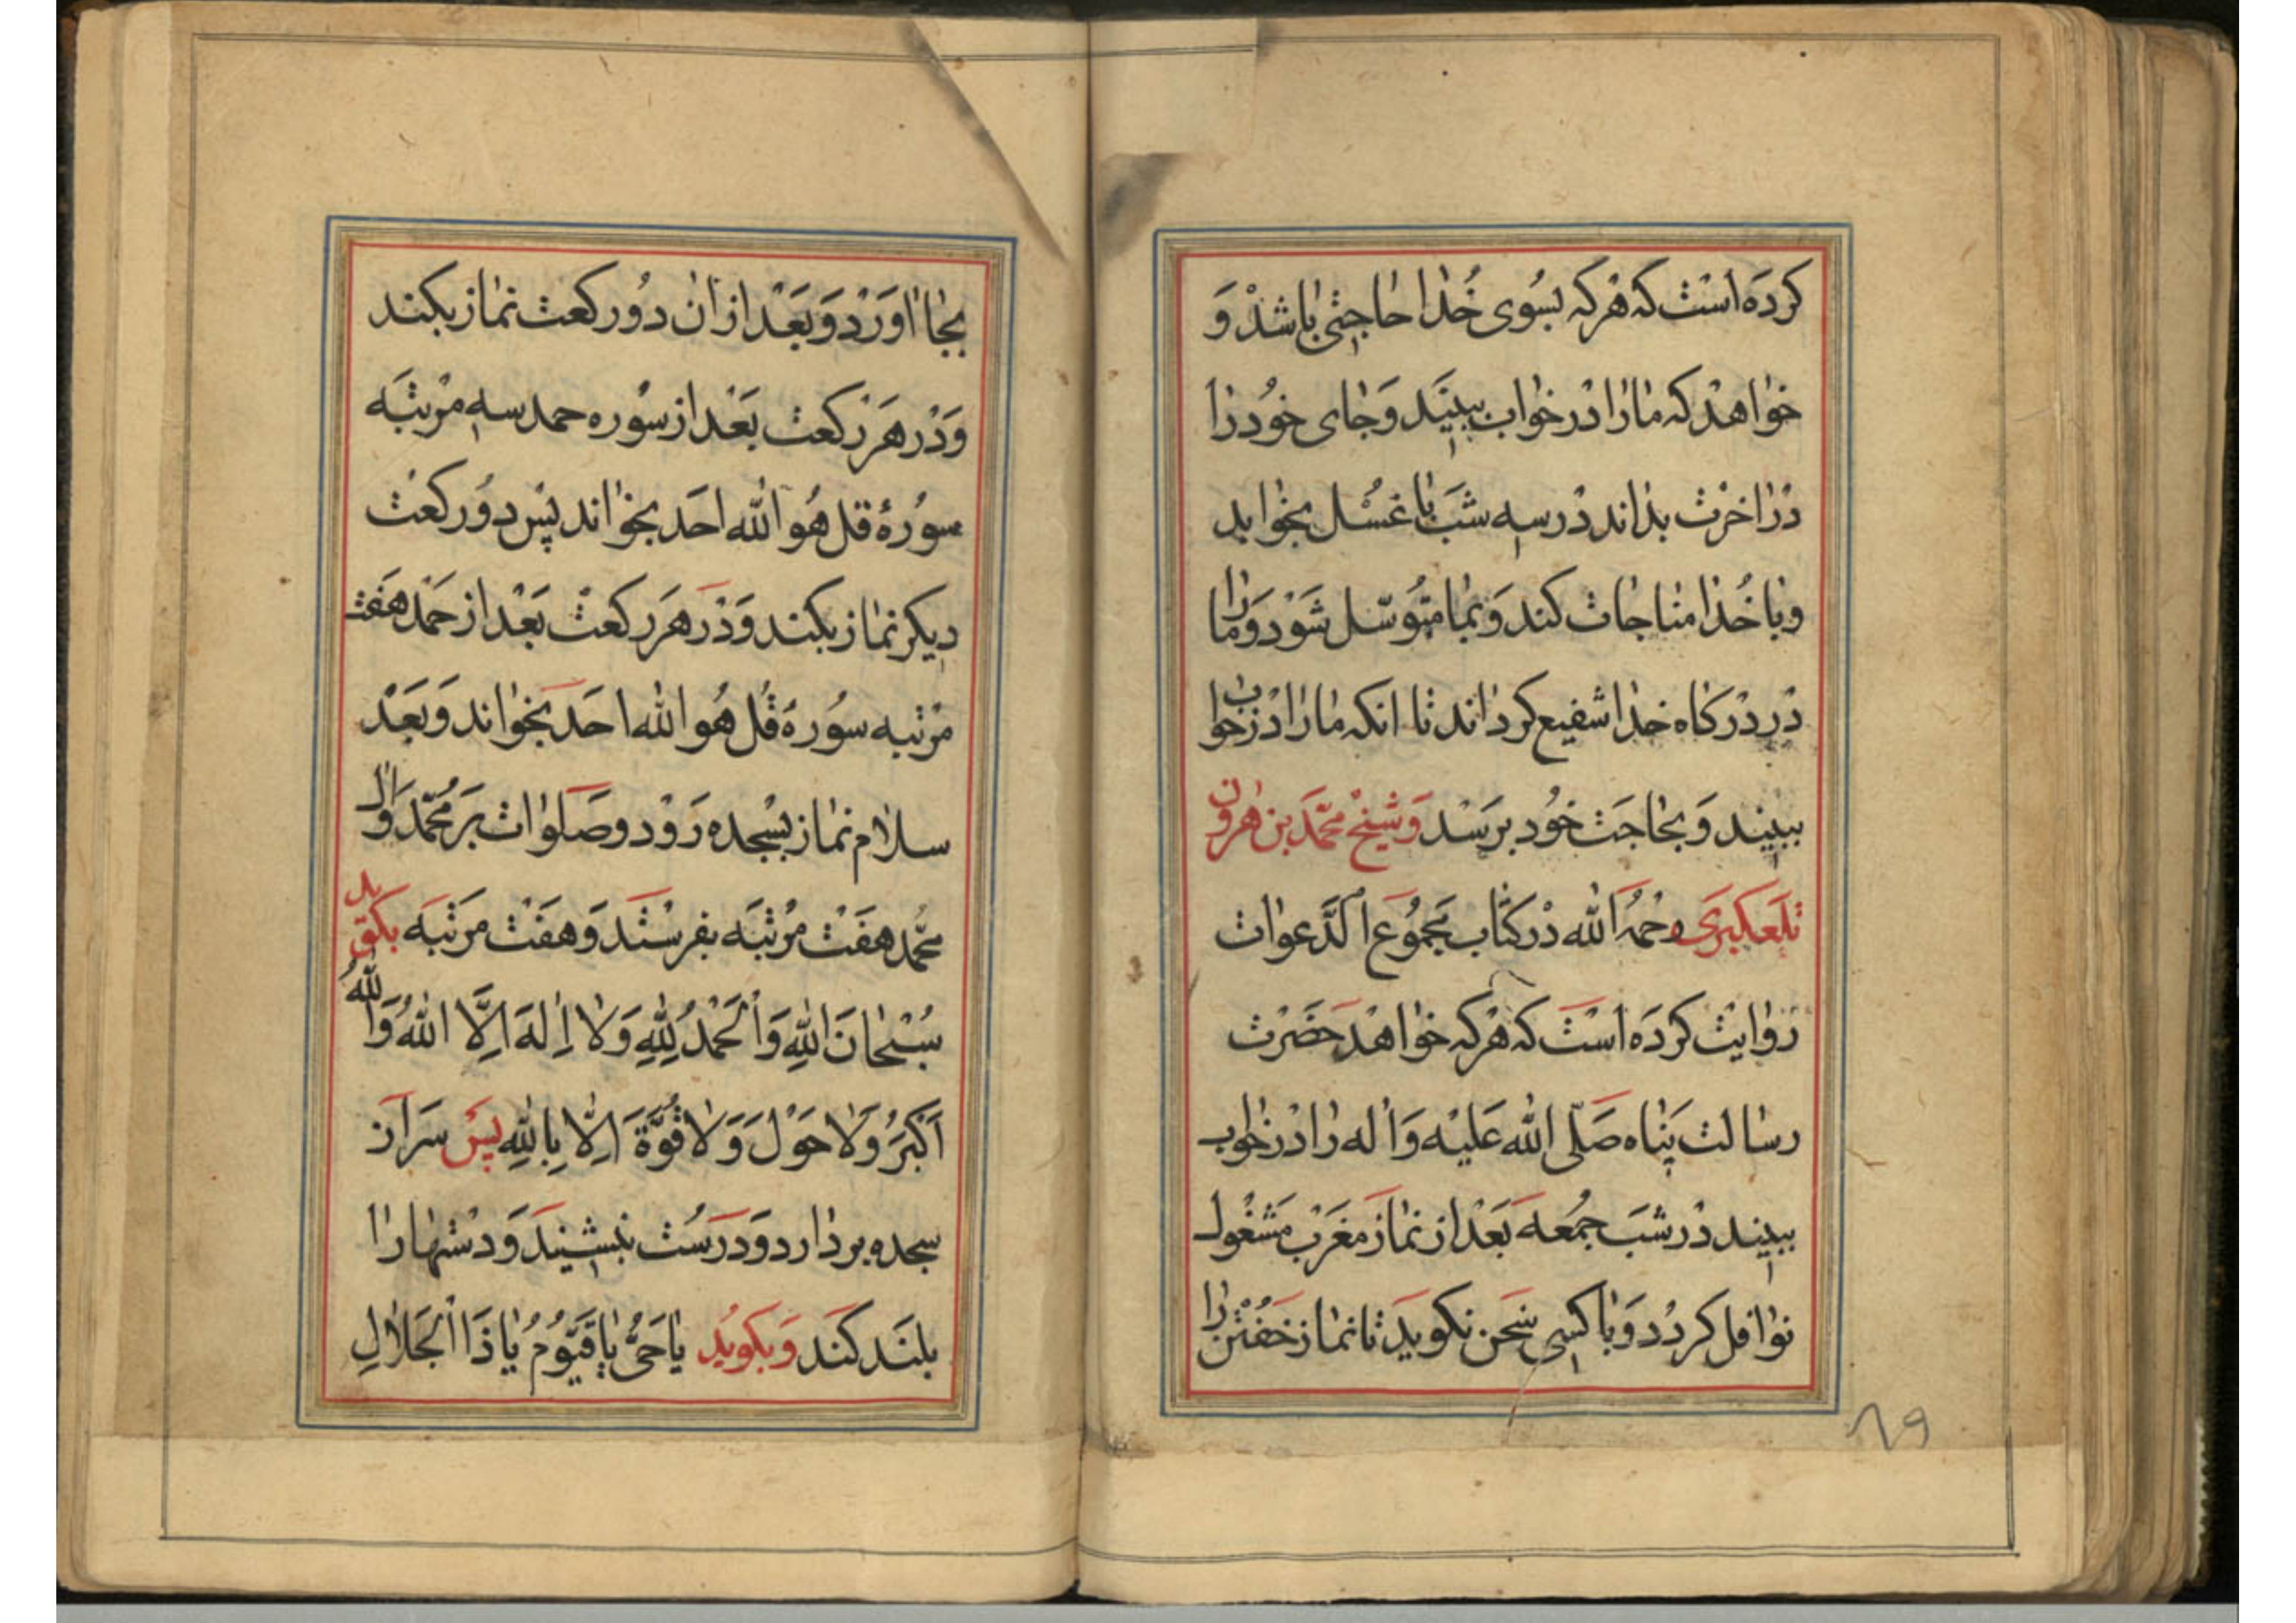 کرده است که هرکه بسوی خدا حاجتی باشد و
خواهد که ما را در خواب ببیند و جای خود را
در اخرت بداند در سه شب با غسل بخوابد
و با خدا مناجات کند و بما متوسل شود و ما را
در درکاه خدا شفیع کرداند تا انکه ما را در خواب
ببیند و بحاجت خود برسد و شیخ محمد بن هرون
تلعکبری رحمه الله در کتاب مجموع الدعوات
روایت کرده است که هرکه خواهد حضرت
رسالت پناه صلی الله علیه و اله را در خواب
ببیند در شب جمعه بعد از نماز مغرب مشغول
نوافل کردد و با کسی سخن نکوید تا نماز خفتن را
۸۹
بجا اورد و بعد از ان دو رکعت نماز بکند
و در هر رکعت بعد از سوره حمد سه مرتبه
سورهٔ قل هو الله احد بخواند پس دو رکعت
دیکر نماز بکند و در هر رکعت بعد از حمد هفت
مرتبه سورهٔ قل هو الله احد بخواند و بعد
سلام نماز بسجده رود و صلوات بر محمد و ال
محمد هفت مرتبه بفرستد و هفت مرتبه بکوید
سُبْحانَ اللهِ وَالْحَمْدُ لِلّٰهِ وَلا اِلٰهَ اِلَّا اللهُ وَاللهُ
اَکْبَرُ وَلا حَوْلَ وَلا قُوَّةَ اِلّا بِاللهِ پس سر از
سجده بردارد و درست بنشیند و دستها را
بلند کند و بکوید یا حَیُّ یا قَیُّومُ یا ذَا الْجَلالِ